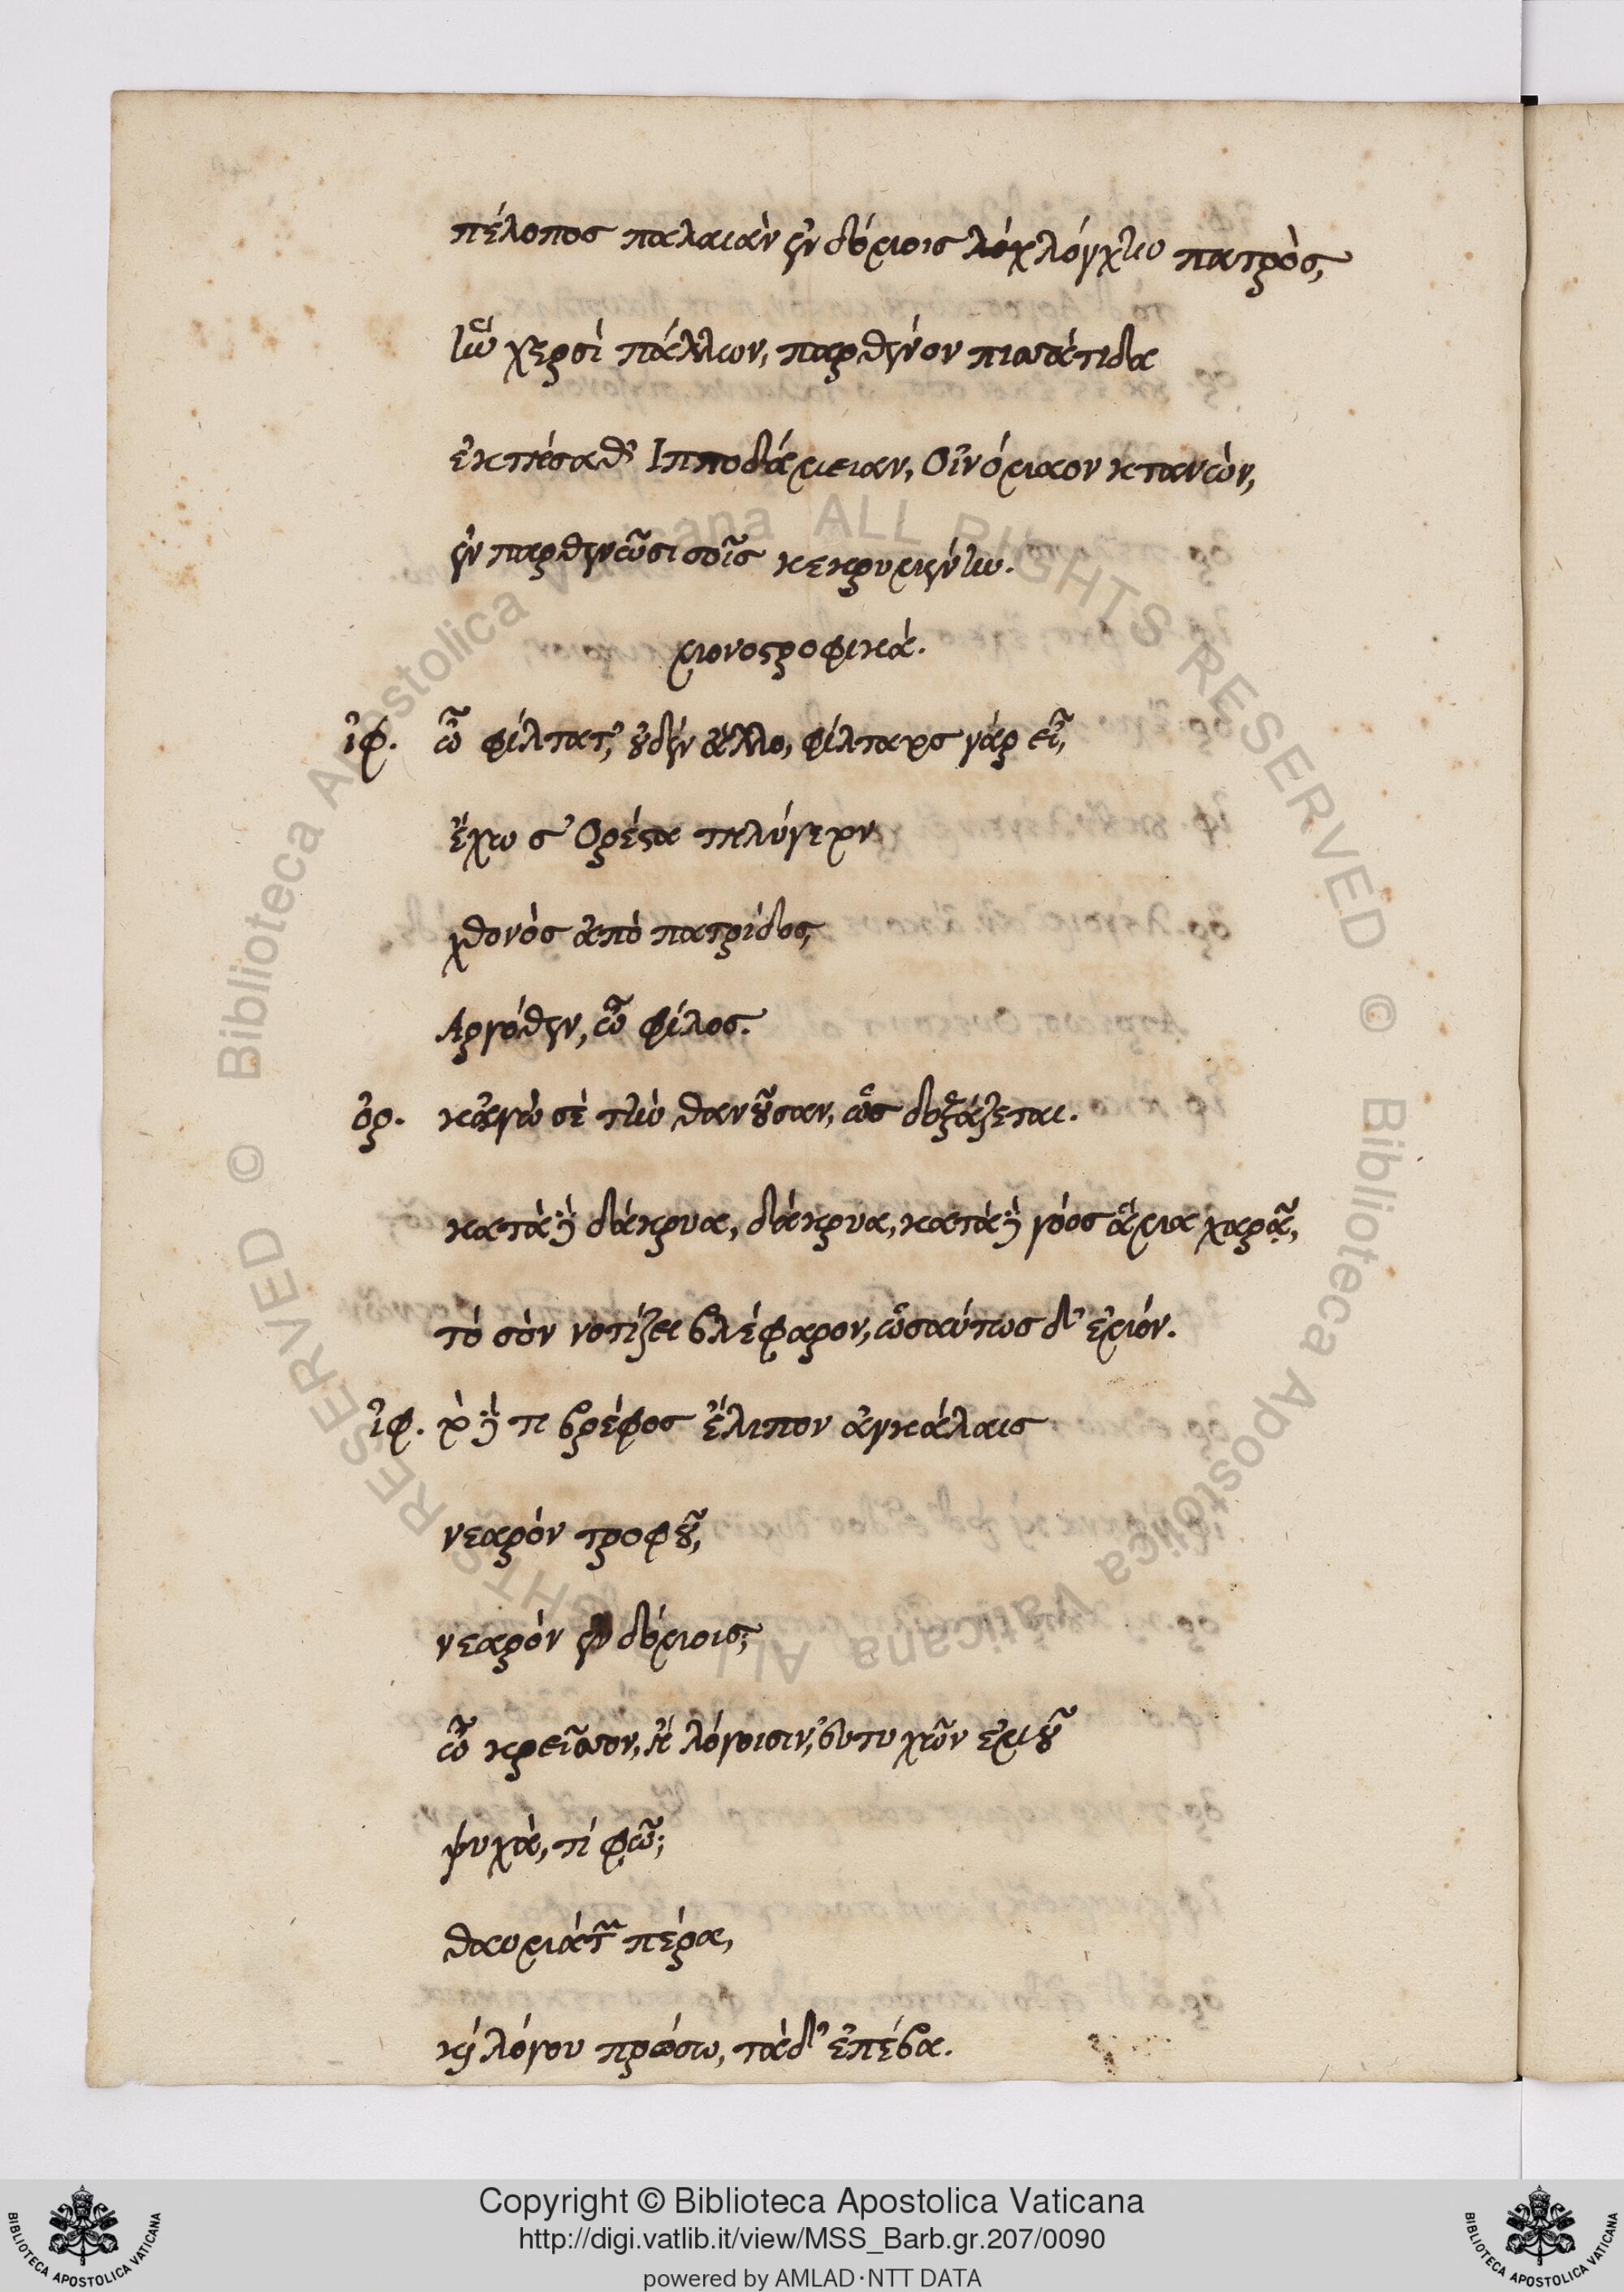 πέλοπος παλαιὰν ἐν δόμοις λόχ λόγχην πατρὸς,
ἣν χερσὶ πάλλων, παρθένον πισσάτιδα
ἐκτήσαθ' Ἱπποδάμειαν, Οἰνόμαον κτανὼν,
ἐν παρθενῶσι σοῖς κεκρυμένην.
μονοστροφικά.
ἰφ. ὦ φίλτατ', οὐδὲν ἄλλο, φίλτατος γὰρ εἶ,
ἔχω σ' Ορέστα τηλύγετον
χθονὸς ἀπὸ πατρίδος,
Αργόθεν, ὦ φίλος.
ὀρ. κἀγὼ σὲ τὴν θανοῦσαν, ὡς δοξάζεται.
κατὰ δὲ δάκρυα, δάκρυα, κατὰ δὲ γόος ἅμα χαρᾷ,
τὸ σὸν νοτίζει βλέφαρον, ὡσαύτως δ' ἐμόν.
ἰφ. τὸ δέ τι βρέφος ἔλιπον ἀγκάλαις
νεαρὸν τροφοῦ,
νεαρὸν ἐν δόμοις;
ὦ κρεῖσσον, ἢ λόγοισιν, εὐτυχῶν ἐμοῦ
ψυχὰ, τί φῶ;
θαυμάτων πέρα,
καὶ λόγου πρόσω, τὰδ' ἐπέβα.
Copyright © Biblioteca Apostolica Vaticana
http://digi.vatlib.it/view/MSS_Barb.gr.207/0090
powered by AMLAD·NTT DATA
BIBLIOTECA APOSTOLICA VATICANA
BIBLIOTECA APOSTOLICA VATICANA
© Biblioteca Apostolica Vaticana ALL RIGHTS RESERVED
© Biblioteca Apostolica Vaticana ALL RIGHTS RESERVED